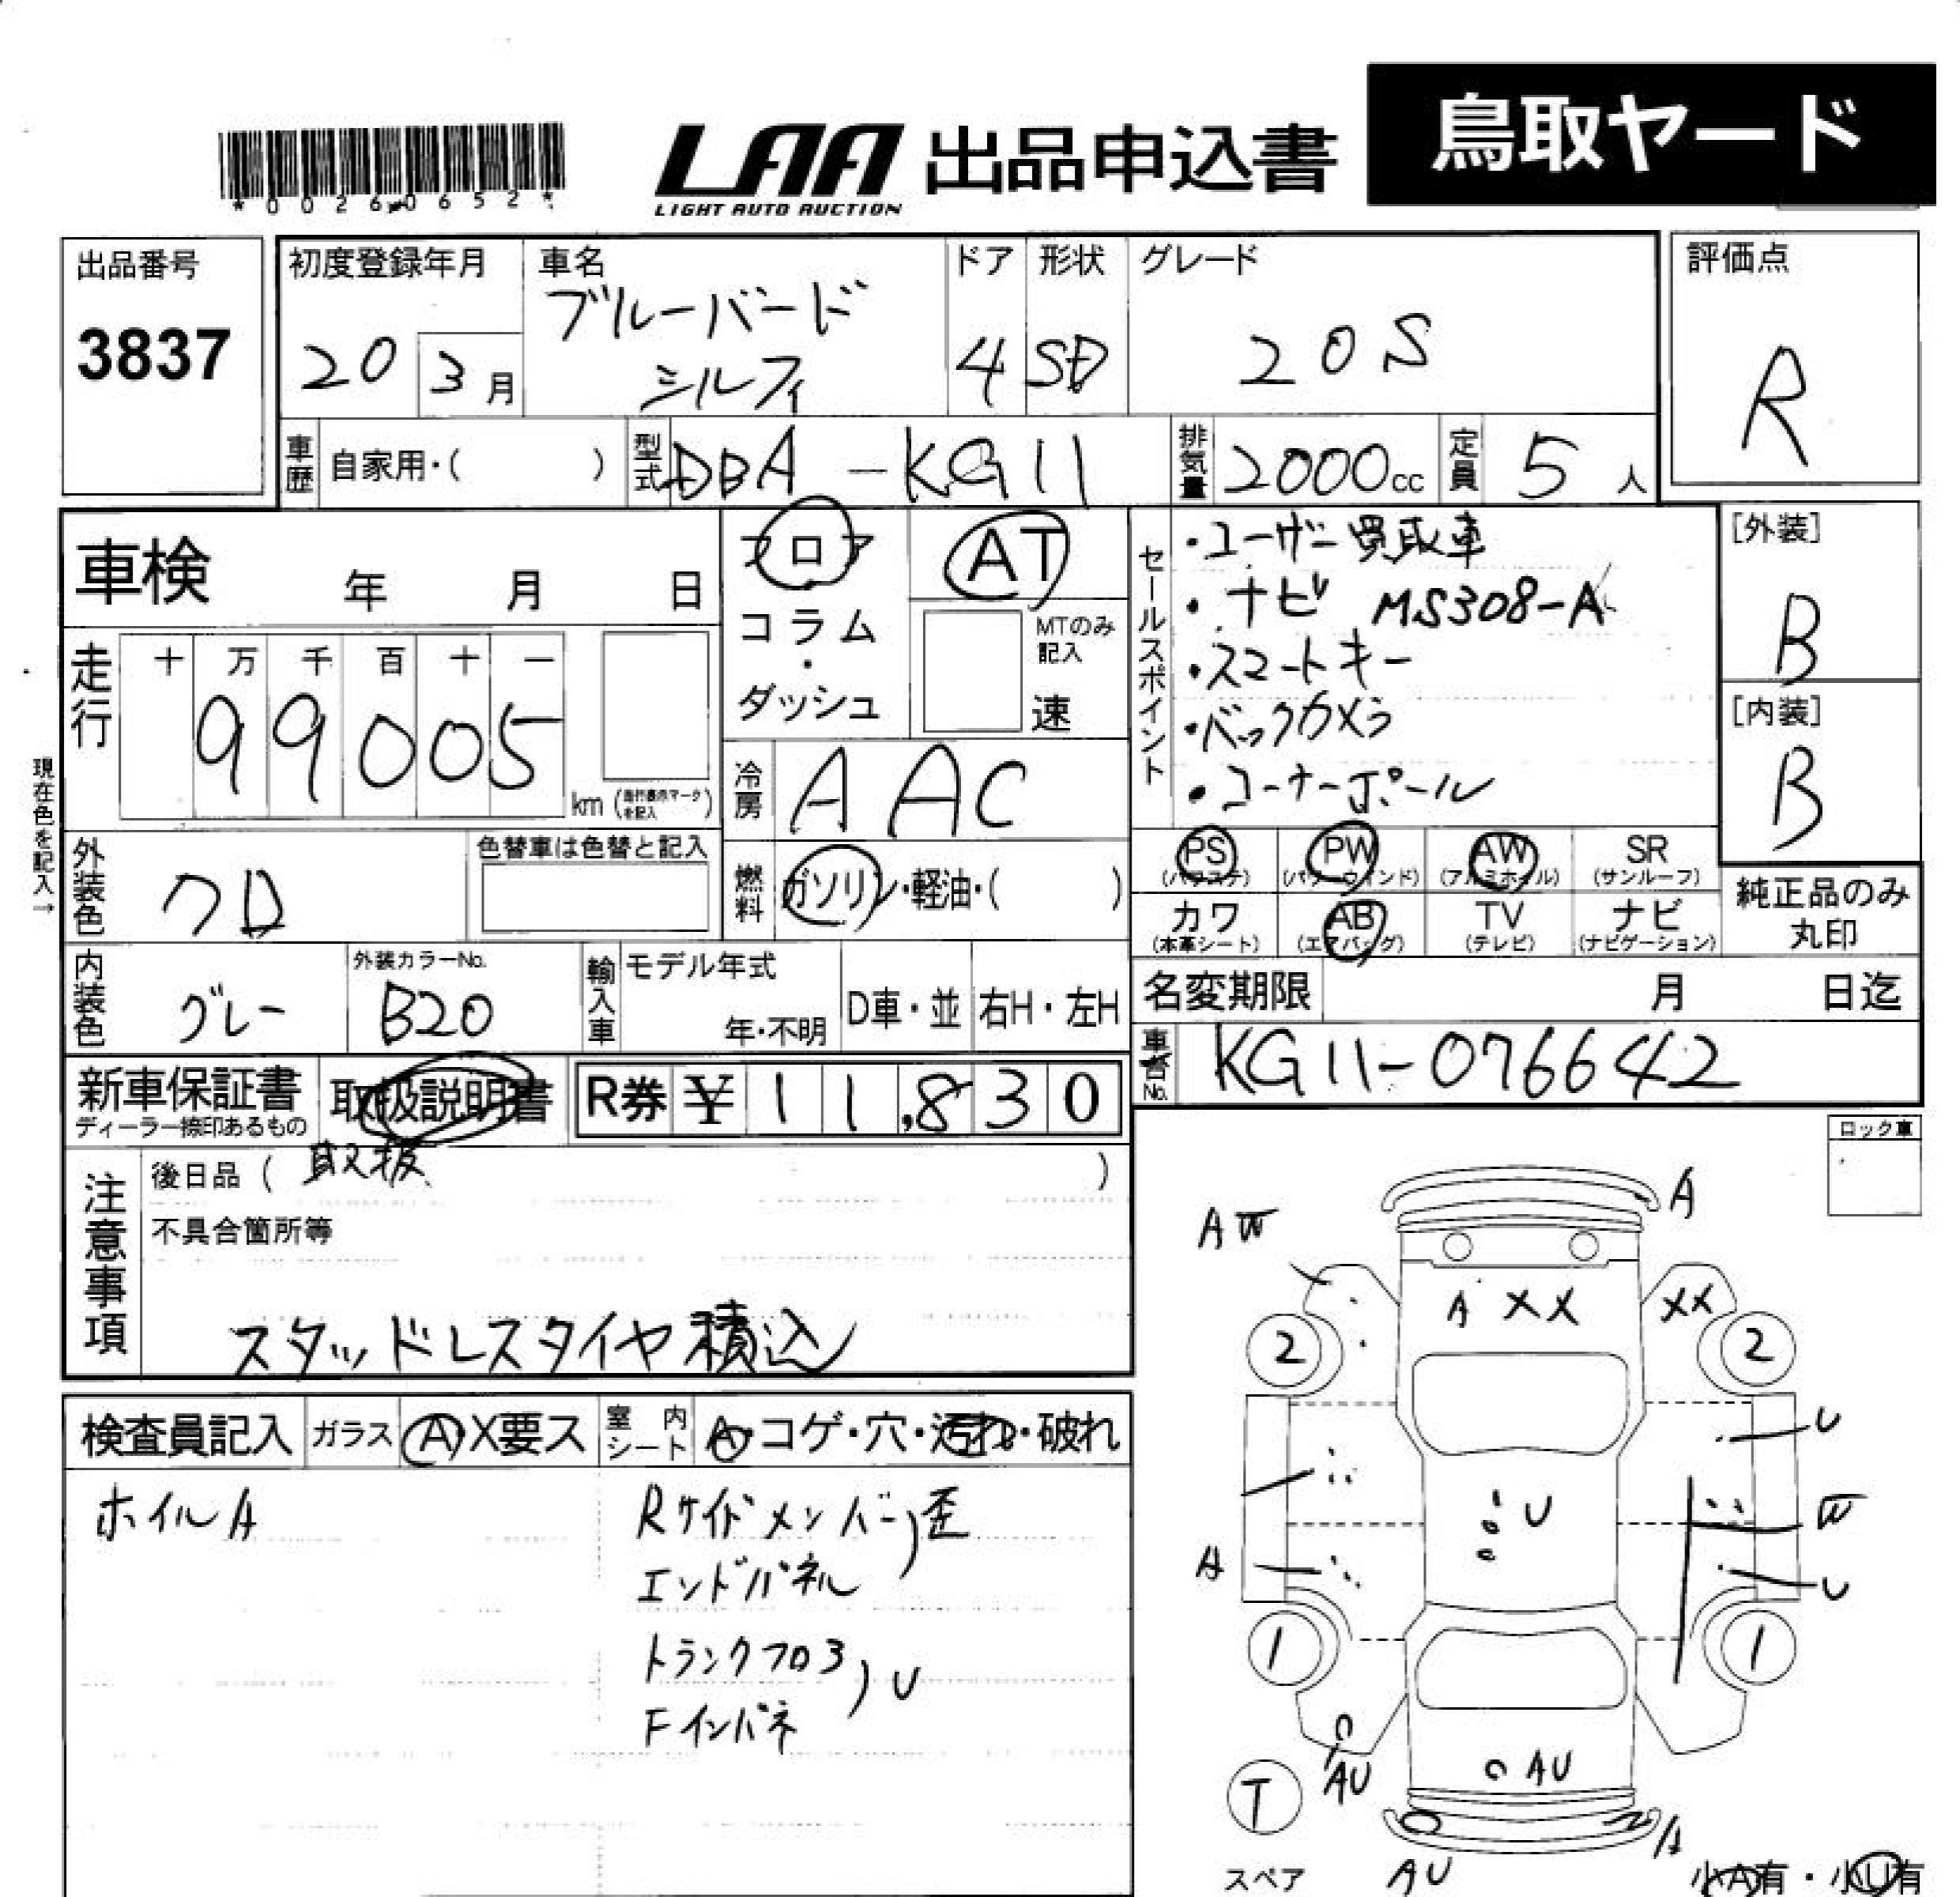 鳥取ヤード
LAA 出品申込書
LIGHT AUTO AUCTION
*00260652*
出品番号
3837
初度登録年月
20 3月
車名
ブルーバード
シルフィ
ドア
4
形状
SD
グレード
20S
評価点
R
車歴 自家用・( )
型式 DBA-KG11
排気量 2000cc
定員 5人
車検 年 月 日
フロア
コラム
・
ダッシュ
AT
MTのみ
記入
速
セールスポイント
・ユーザー買取車
・ナビ MS308-A
・スマートキー
・バックカメラ
・コーナーポール
[外装]
B
[内装]
B
走行
十 万 千 百 十 一
99005
km
現在色を記入→
冷房 AAC
外装色 クロ
色替車は色替と記入
燃料 ガソリン・軽油・( )
PS
(パワステ)
PW
(パワーウィンド)
AW
(アルミホイル)
SR
(サンルーフ)
カワ
(本革シート)
AB
(エアバッグ)
TV
(テレビ)
ナビ
(ナビゲーション)
純正品のみ
丸印
内装色 グレー
外装カラーNo.
B20
輸入車
モデル年式
年・不明
D車・並
右H・左H
名変期限 月 日迄
車台No. KG11-076642
新車保証書
ディーラー捺印あるもの
取扱説明書
R券 ¥11,830
注意事項
後日品 ( 取扱 )
不具合箇所等
スタッドレスタイヤ積込
ロック車
検査員記入
ガラス A X要ス
室内シート A・コゲ・穴・汚れ・破れ
ホイルA
Rサイドメンバー)歪
エンドパネル
トランクフロア)U
Fインパネ
A
AW
A XX
XX
2
2
U
U
W
A
U
1
1
AU
AU
T
スペア
AU
A
小A有・小U有